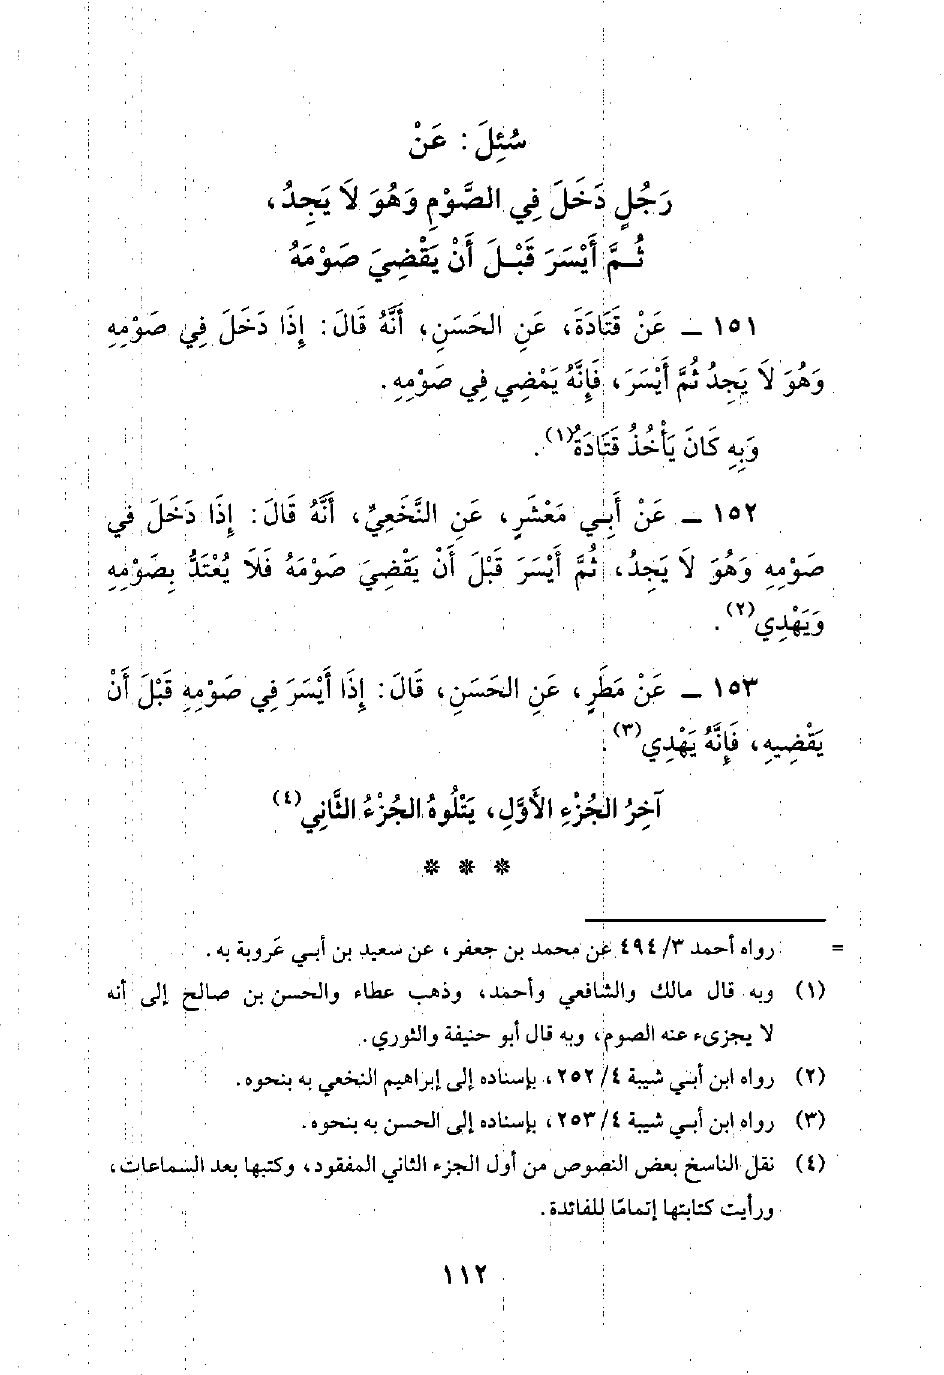 سُئِلَ : عَنْ
رَجُلٍ دَخَلَ فِي الصَّوْمِ وَهُوَ لاَ يَجِدُ،
ثُمَّ أَيْسَرَ قَبْلَ أَنْ يَقْضِيَ صَوْمَهُ
١٥١ ــ عَنْ قَتَادَةَ، عَنِ الحَسَنِ، أَنَّهُ قَالَ: إِذَا دَخَلَ فِي صَوْمِهِ
وَهُوَ لاَ يَجِدُ ثُمَّ أَيْسَرَ، فَإِنَّهُ يَمْضِي فِي صَوْمِهِ.
وَبِهِ كَانَ يَأْخُذُ قَتَادَةُ(١).
١٥٢ ــ عَنْ أَبِي مَعْشَرٍ، عَنِ النَّخَعِيِّ، أَنَّهُ قَالَ: إِذَا دَخَلَ في
صَوْمِهِ وَهُوَ لاَ يَجِدُ، ثُمَّ أَيْسَرَ قَبْلَ أَنْ يَقْضِيَ صَوْمَهُ فَلاَ يُعْتَدُّ بِصَوْمِهِ
وَيَهْدِي(٢).
١٥٣ ــ عَنْ مَطَرٍ، عَنِ الحَسَنِ، قَالَ: إِذَا أَيْسَرَ فِي صَوْمِهِ قَبْلَ أَنْ
يَقْضِيهِ، فَإِنَّهُ يَهْدِي(٣).
آخِرُ الجُزْءِ الأَوَّلِ، يَتْلُوهُ الجُزْءُ الثَّانِي(٤)
* * *
= رواه أحمد ٣/ ٤٩٤ عن محمد بن جعفر، عن سعيد بن أبي عَروبة به.
(١) وبه قال مالك والشافعي وأحمد، وذهب عطاء والحسن بن صالح إلى أنه
لا يجزىء عنه الصوم، وبه قال أبو حنيفة والثوري.
(٢) رواه ابن أبي شيبة ٤/ ٢٥٢، بإسناده إلى إبراهيم النخعي به بنحوه.
(٣) رواه ابن أبي شيبة ٤/ ٢٥٣، بإسناده إلى الحسن به بنحوه.
(٤) نقل الناسخ بعض النصوص من أول الجزء الثاني المفقود، وكتبها بعد السماعات،
ورأيت كتابتها إتمامًا للفائدة.
١١٢